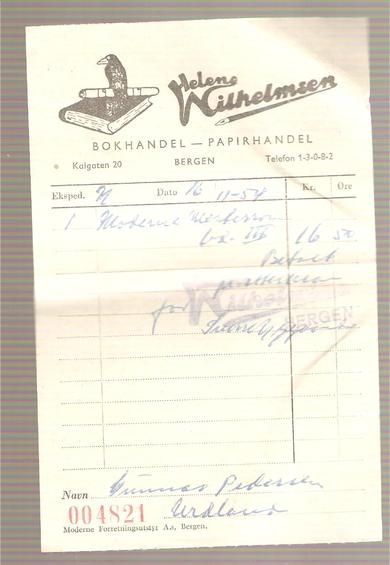 Helene
Wilhelmsen
BOKHANDEL — PAPIRHANDEL
Kalgaten 20 BERGEN Telefon 1-3-0-8-2
Eksped. N Dato 16 11-54 Kr. Øre
1 Moderne
bd. III 16 50
Betalt
Wilhel
for BERGEN
Navn Gunnar Pedersen
004821 Urdland
Moderne Forretningsutstyr A.s, Bergen.